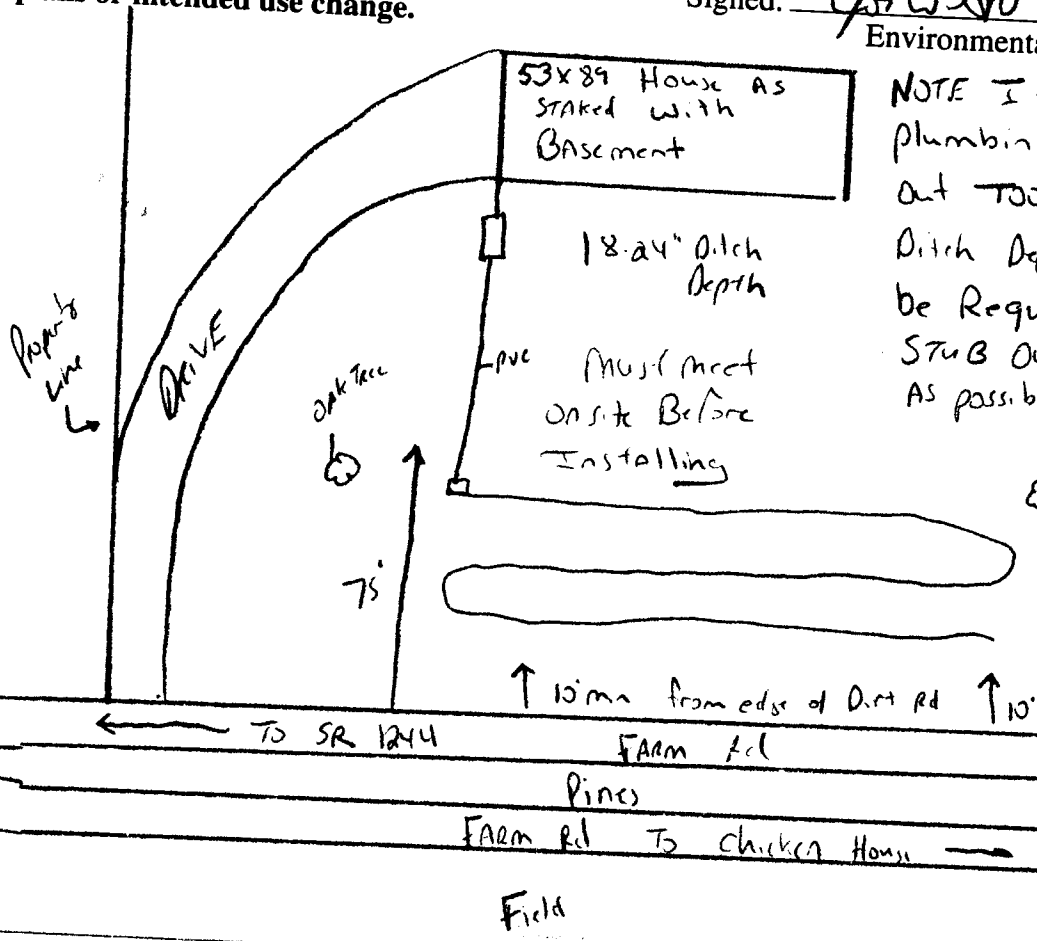 plans or intended use change.
Signed:
Environmenta
53x89 House As
STAKed with
BAsement
NOTE I
plumbin
Out TOO
Ditch De
be Requ
STUB Ou
As possib
18-24" Ditch
Depth
Property
Line
DRIVE
OAK TREE
PVC
Must meet
onsite Before
Installing
75'
10' min from edge of Dirt Rd
10'
TO SR 1244
FARM Rd
Pines
FARM Rd To Chicken House
Field